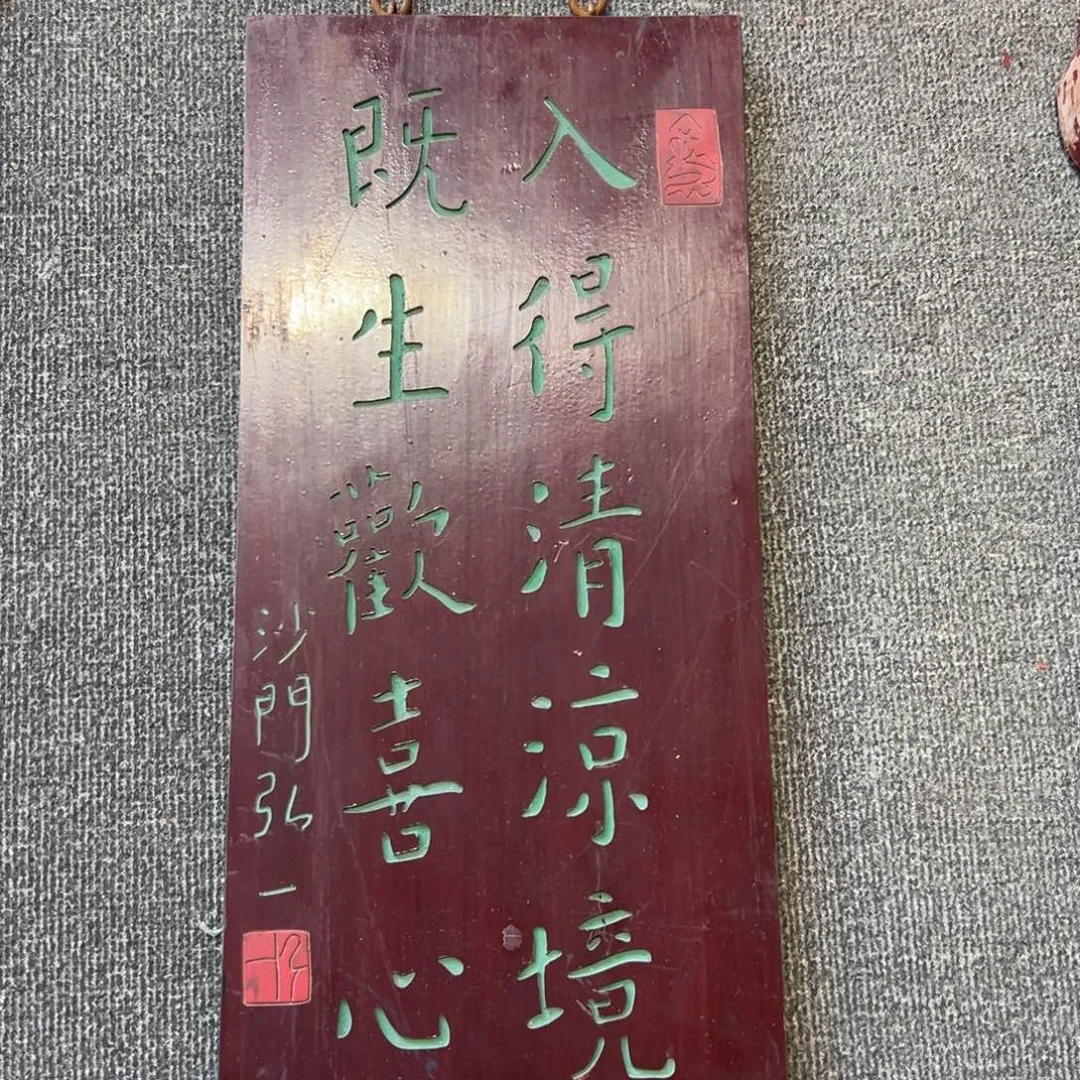 入得清涼境
既生歡喜心
沙門弘一